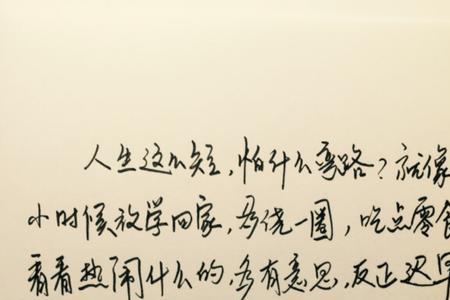 人生这么短，怕什么弯路？就像
小时候放学回家，多绕一圈，吃点零食
看看热闹什么的，多有意思，反正迟早